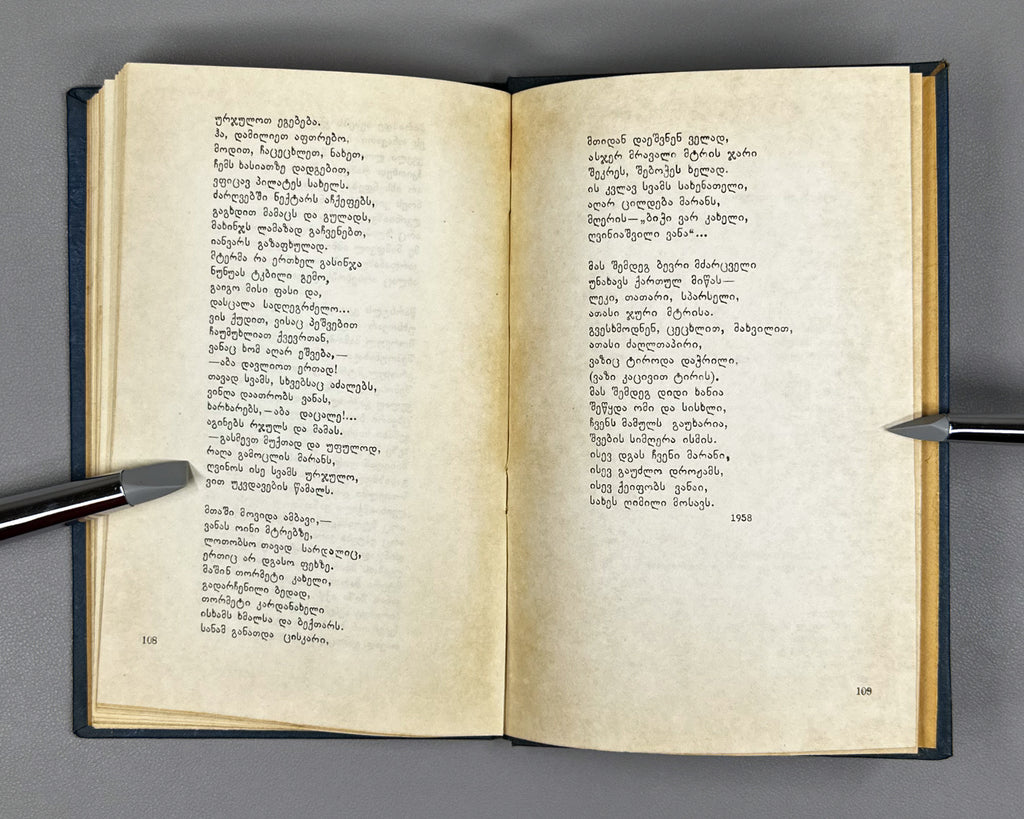 ურჯულოთ ეგებება.
ჰა, დამილიეთ აფთრებო.
მოდით, ჩაცეცხლეთ, ნახეთ,
ჩემს ხასიათზე დადგებით,
ვფიცავ პილატეს სახელს.
ძარღვებში ნექტარს აჩქეფებს,
გაგხდით მამაცს და გულადს,
მახინჯს ლამაზად გაჩვენებთ,
იანვარს გაზაფხულად.
მტერმა რა ერთხელ გასინჯა
ნუნუას ტკბილი გემო,
გაიგო მისი ფასი და,
დასცალა სადღეგრძელო...
ვის ქუდით, ვისაც პეშვებით
ჩაუმუხლიათ ქვევრთან,
ვანაც ხომ აღარ ეშვება,—
—აბა დავლიოთ ერთად!
თავად სვამს, სხვებსაც აძალებს,
ვინღა დაათრობს ვანას,
ხარხარებს,—აბა დაცალე!...
აგინებს რჯულს და მამას.
—გასმევთ მუქთად და უფულოდ,
რაღა გამოცლის მარანს,
ღვინოს ისე სვამს ურჯულო,
ვით უკვდავების წამალს.
მთაში მოვიდა ამბავი,—
ვანას ოინი მტრებზე,
ლოთობსო თავად სარდალიც,
ერთიც არ დგასო ფეხზე.
მაშინ თორმეტი კახელი,
გადარჩენილი ბედად,
თორმეტი კარდანახელი
ისხამს ხმალსა და ბექთარს.
სანამ განათდა ცისკარი,
108
მთიდან დაეშვნენ ველად,
ასჯერ მრავალი მტრის ჯარი
შეკრეს, შებოჭეს ხელად.
ის კვლავ სვამს სახენათელი,
აღარ ცილდება მარანს,
მღერის—„ბიჭი ვარ კახელი,
ღვინიაშვილი ვანა“...
მას შემდეგ ბევრი მძარცველი
უნახავს ქართულ მიწას—
ლეკი, თათარი, სპარსელი,
ათასი ჯური მტრისა.
გვესხმოდნენ, ცეცხლით, მახვილით,
ათასი ძაღლთაპირი,
ვაზიც ტიროდა დაჭრილი.
(ვაზი კაცივით ტირის).
მას შემდეგ დიდი ხანია
შეწყდა ომი და სისხლი,
ჩვენს მამულს გაუხარია,
შვების სიმღერა ისმის.
ისევ დგას ჩვენი მარანი,
ისევ გაუძლო დროჟამს,
ისევ ქეიფობს ვანაი,
სახეს ღიმილი მოსავს.
1958
109